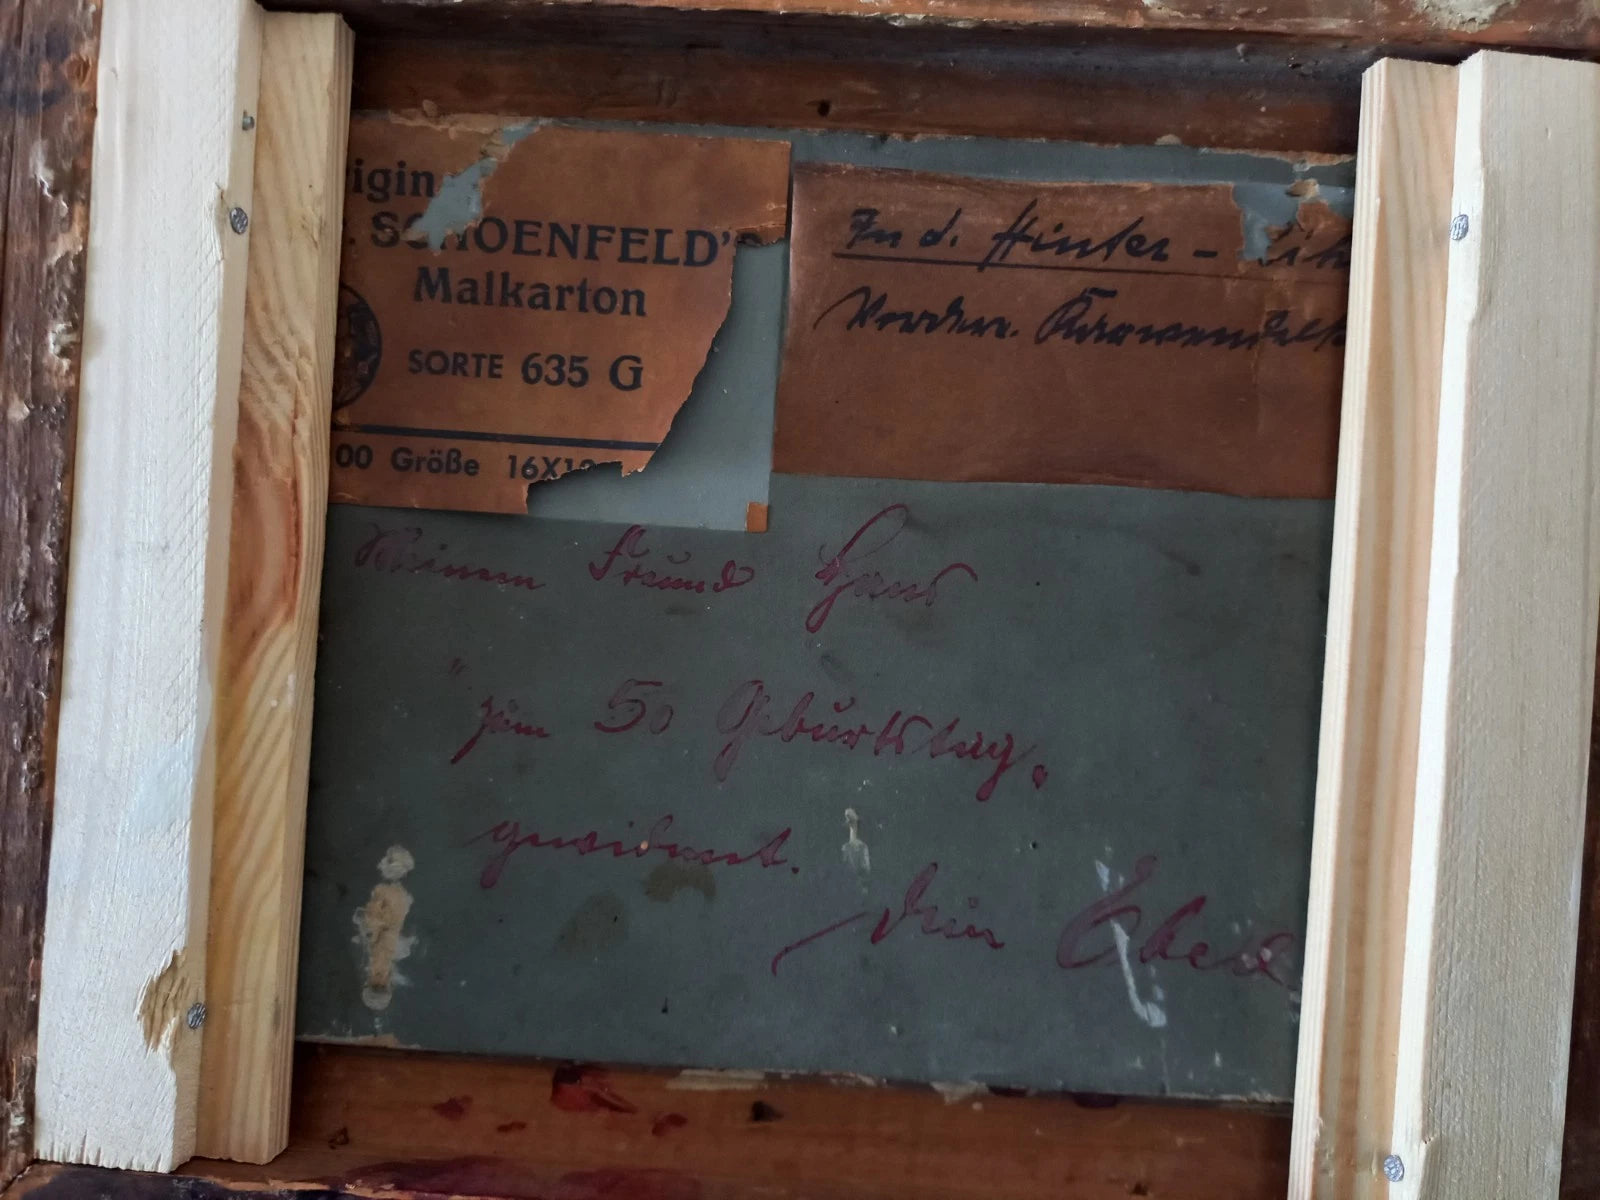 igin
. SCHOENFELD'S
Malkarton
SORTE 635 G
00 Größe 16X12
In d. Hinter-
Vordere. Karwendel
Meinem Freund Hans
" zum 50 Geburtstag.
gewidmet.
Dein